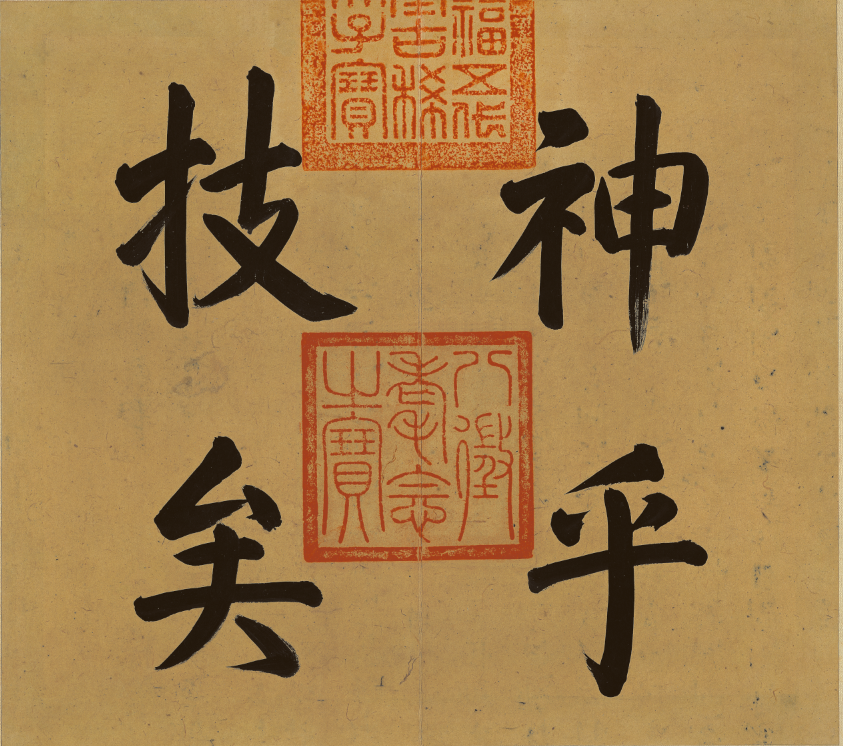 神乎
技矣
福五代
古稀
子寶
八徵
耄念
之寶